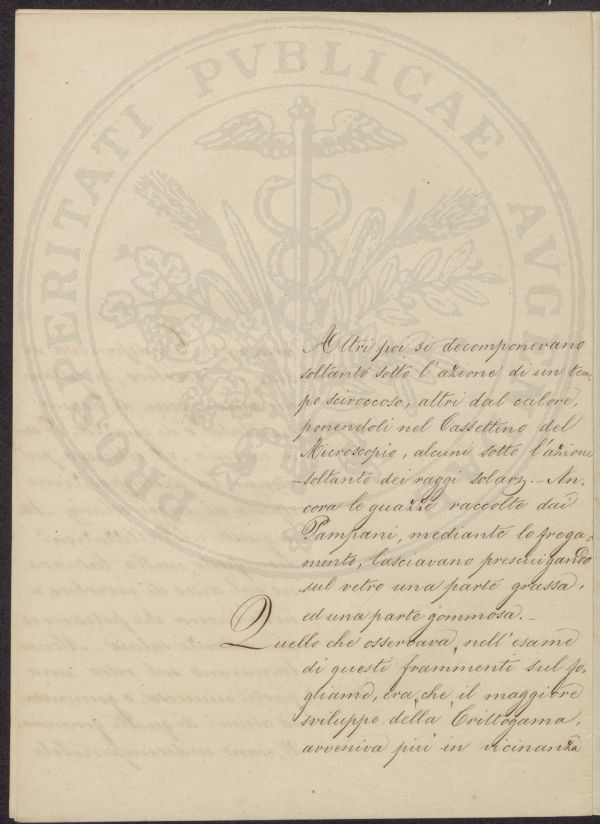 PROSPERITATI PVBLICAE AVG
Altri poi si decomponevano
soltanto sotto l'azione di un tem,
po sciroccoso, altri dal calore,
ponendoli nel Cassettino del
Microscopio, alcuni sotto l'azione
soltanto dei raggi solarj. - An,
cora le guazze raccolte dai
Pampani, mediante lo frega,
mento, lasciavano prosciugando
sul vetro una parte grassa,
ed una parte gommosa. -
Quello che osservava, nell'esame
di questi frammenti sul fo,
gliame, era, che il maggiore
sviluppo della Crittogama,
avveniva più in vicinanza